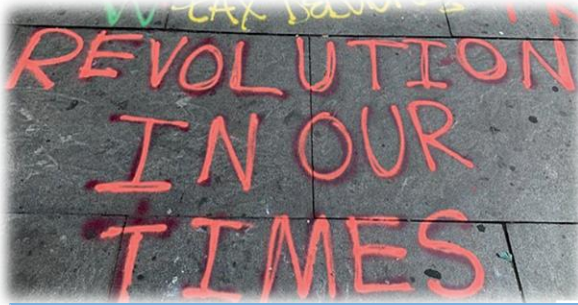 TAX
REVOLUTION
IN OUR
TIMES